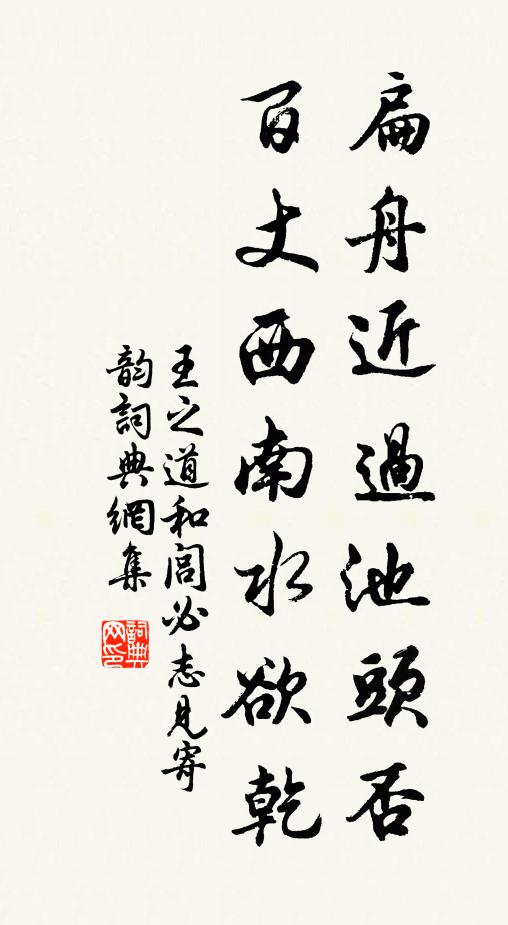 扁舟近過池頭否
百丈西南水欲乾
王之道和閻必志見寄
韵詞典網集
詞典网印